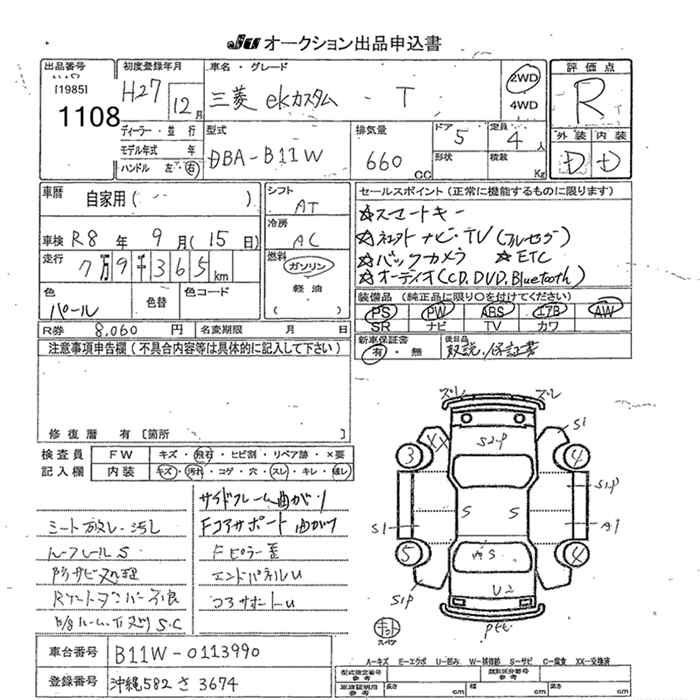 JU オークション出品申込書
出品番号
[1985]
1108
初度登録年月
H27 12月
ディーラー・並行
モデル年式 年
ハンドル 左・右
車名・グレード
三菱 ekカスタム T
2WD
4WD
評価点
R
外装 内装
D D
型式
DBA-B11W
排気量
660 CC
ドア 5
形状
定員 4人
積載 Kg
車歴
自家用( )
シフト
AT
車検 R8 年 9 月(15 日)
冷房
AC
走行
7万9千365km
燃料
ガソリン
軽油
( )
色
パール
色替
色コード
R券 8,060 円
名変期限 月 日
セールスポイント(正常に機能するものに限ります)
☆スマートキー
☆ナビ・TV(フルセグ)
☆バックカメラ ☆ETC
☆オーディオ(CD,DVD,Bluetooth)
装備品(純正品に限り〇を付けてください)
PS PW ABS エアB AW
SR ナビ TV カワ
新車保証書
有・無
後日品
取説・保証書
注意事項申告欄(不具合内容等は具体的に記入して下さい)
修復歴 有[箇所 ]
検査員
記入欄
FW キズ・飛石・ヒビ割・リペア跡・×要
内装 キズ・汚れ・コゲ・穴・スレ・キレ・
サイドフレーム曲がり
Fコアサポート曲がり
Fピラー歪
エンドパネルU
コアサポートU
シート破れ・汚し
ルーフレールS
防サビ処理
S.C
車台番号 B11W-0113990
登録番号 沖縄582 さ 3674
ズレ ズレ
S1
3 4
S2.P
S1.P
S1 S S A1
5 4
AS
U2
S1P
スペア
A-キズ E-エクボ U-凹み W-補修跡 S-サビ C-腐食 XX-交換済
型式指定番号
参考
類別区分番号
参考
参考
長さ cm
幅 cm
高さ cm